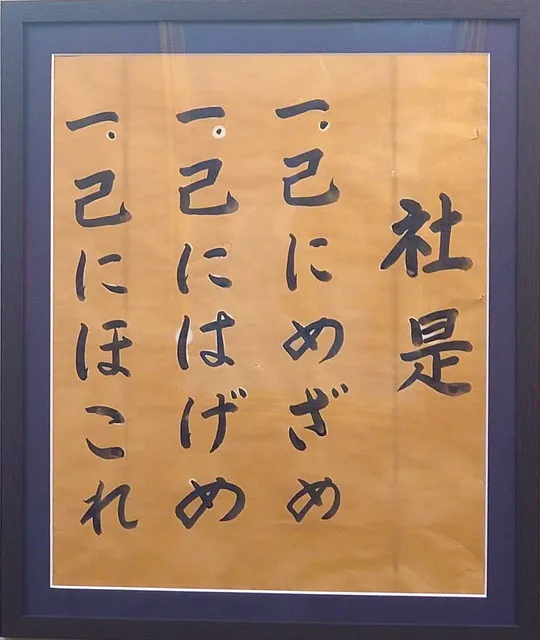 社是
一。己にめざめ
一。己にはげめ
一。己にほこれ